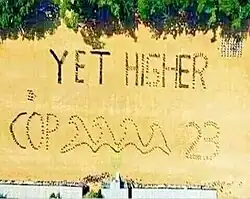 YET HIGHER
COP 23